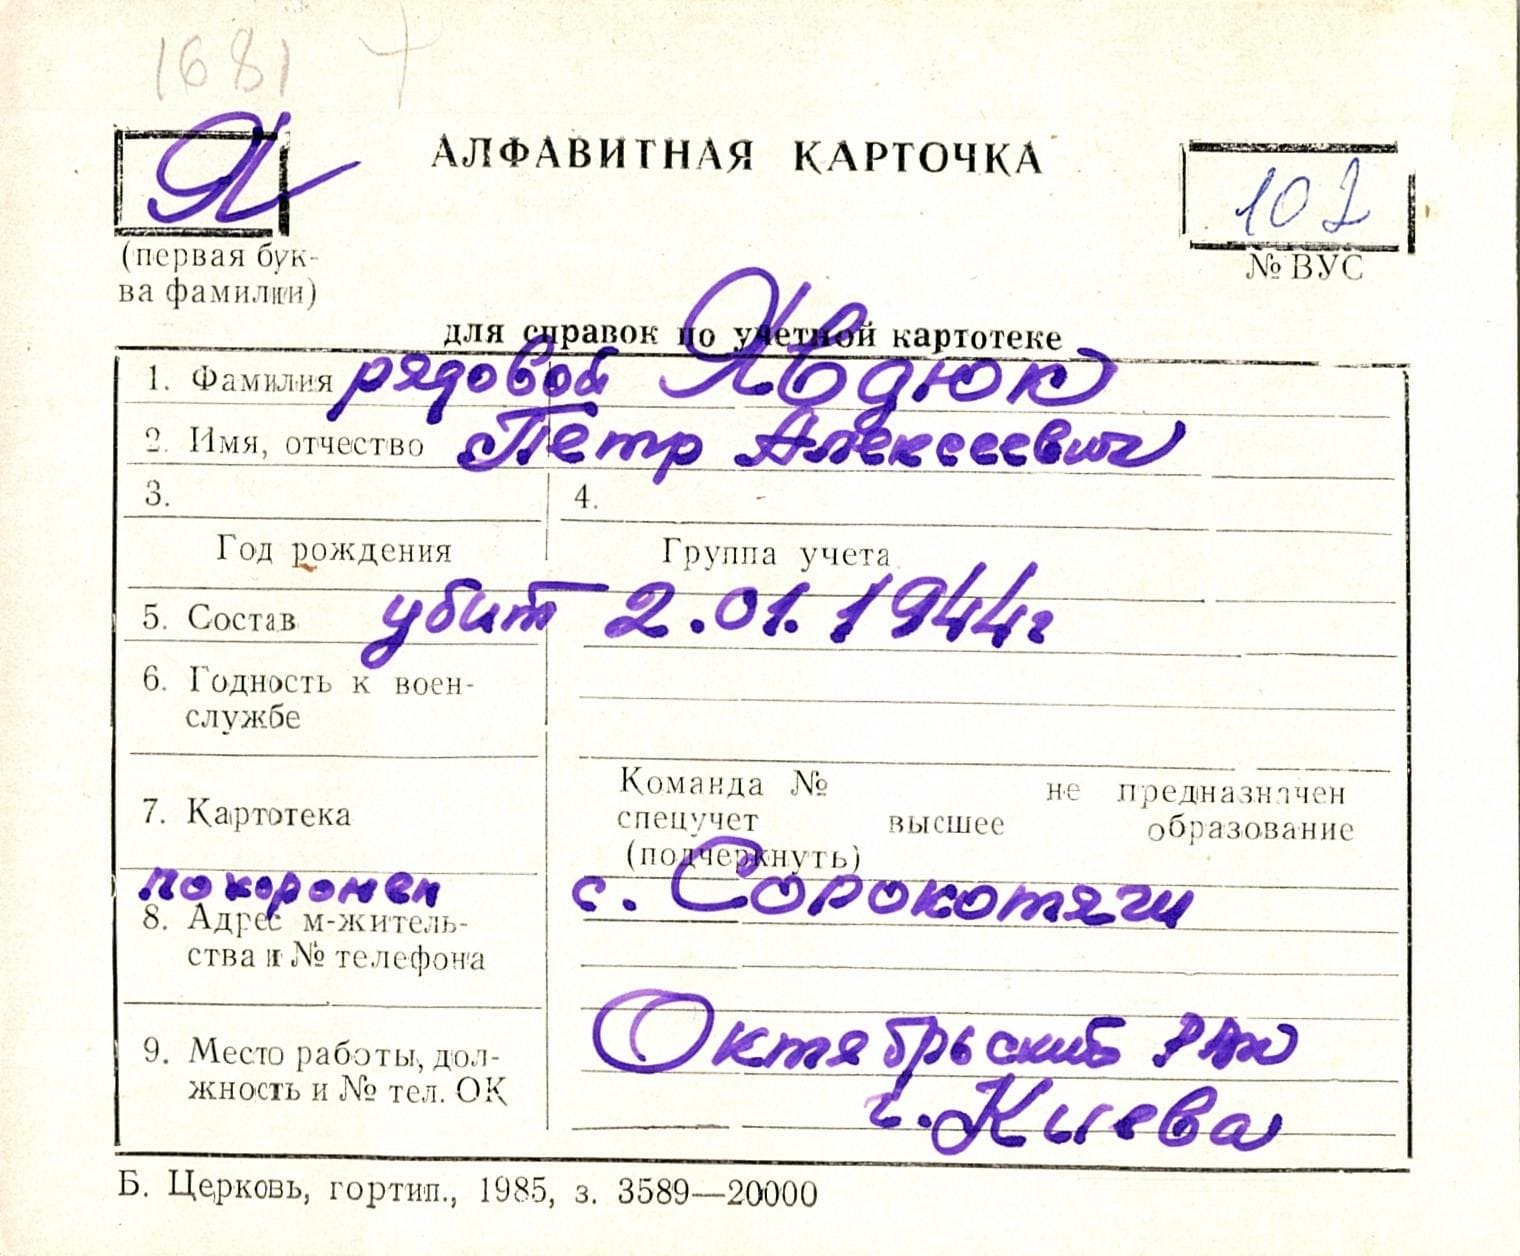 1681 +
Я
АЛФАВИТНАЯ КАРТОЧКА
102
(первая бук-
ва фамилии)
№ ВУС
для справок по учетной картотеке
1. Фамилия рядовой Явдюк
2. Имя, отчество Петр Алексеевич
3. 4.
Год рождения Группа учета
5. Состав убит 2.01.1944г
6. Годность к воен-
службе
Команда № не предназначен
7. Картотека спецучет высшее образование
(подчеркнуть)
похоронен с. Сорокотяги
8. Адрес м-житель-
ства и № телефона
Октябрьский РВК
9. Место работы, дол-
жность и № тел. ОК
г. Киева
Б. Церковь, гортип., 1985, з. 3589—20000